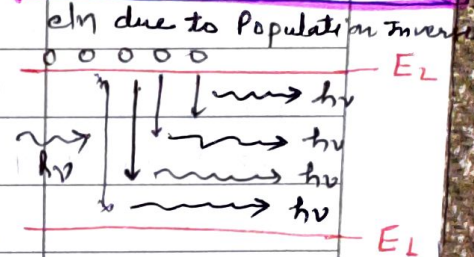 eln due to Population Inver
E2
hν
hν
hν
hν
hν
E1